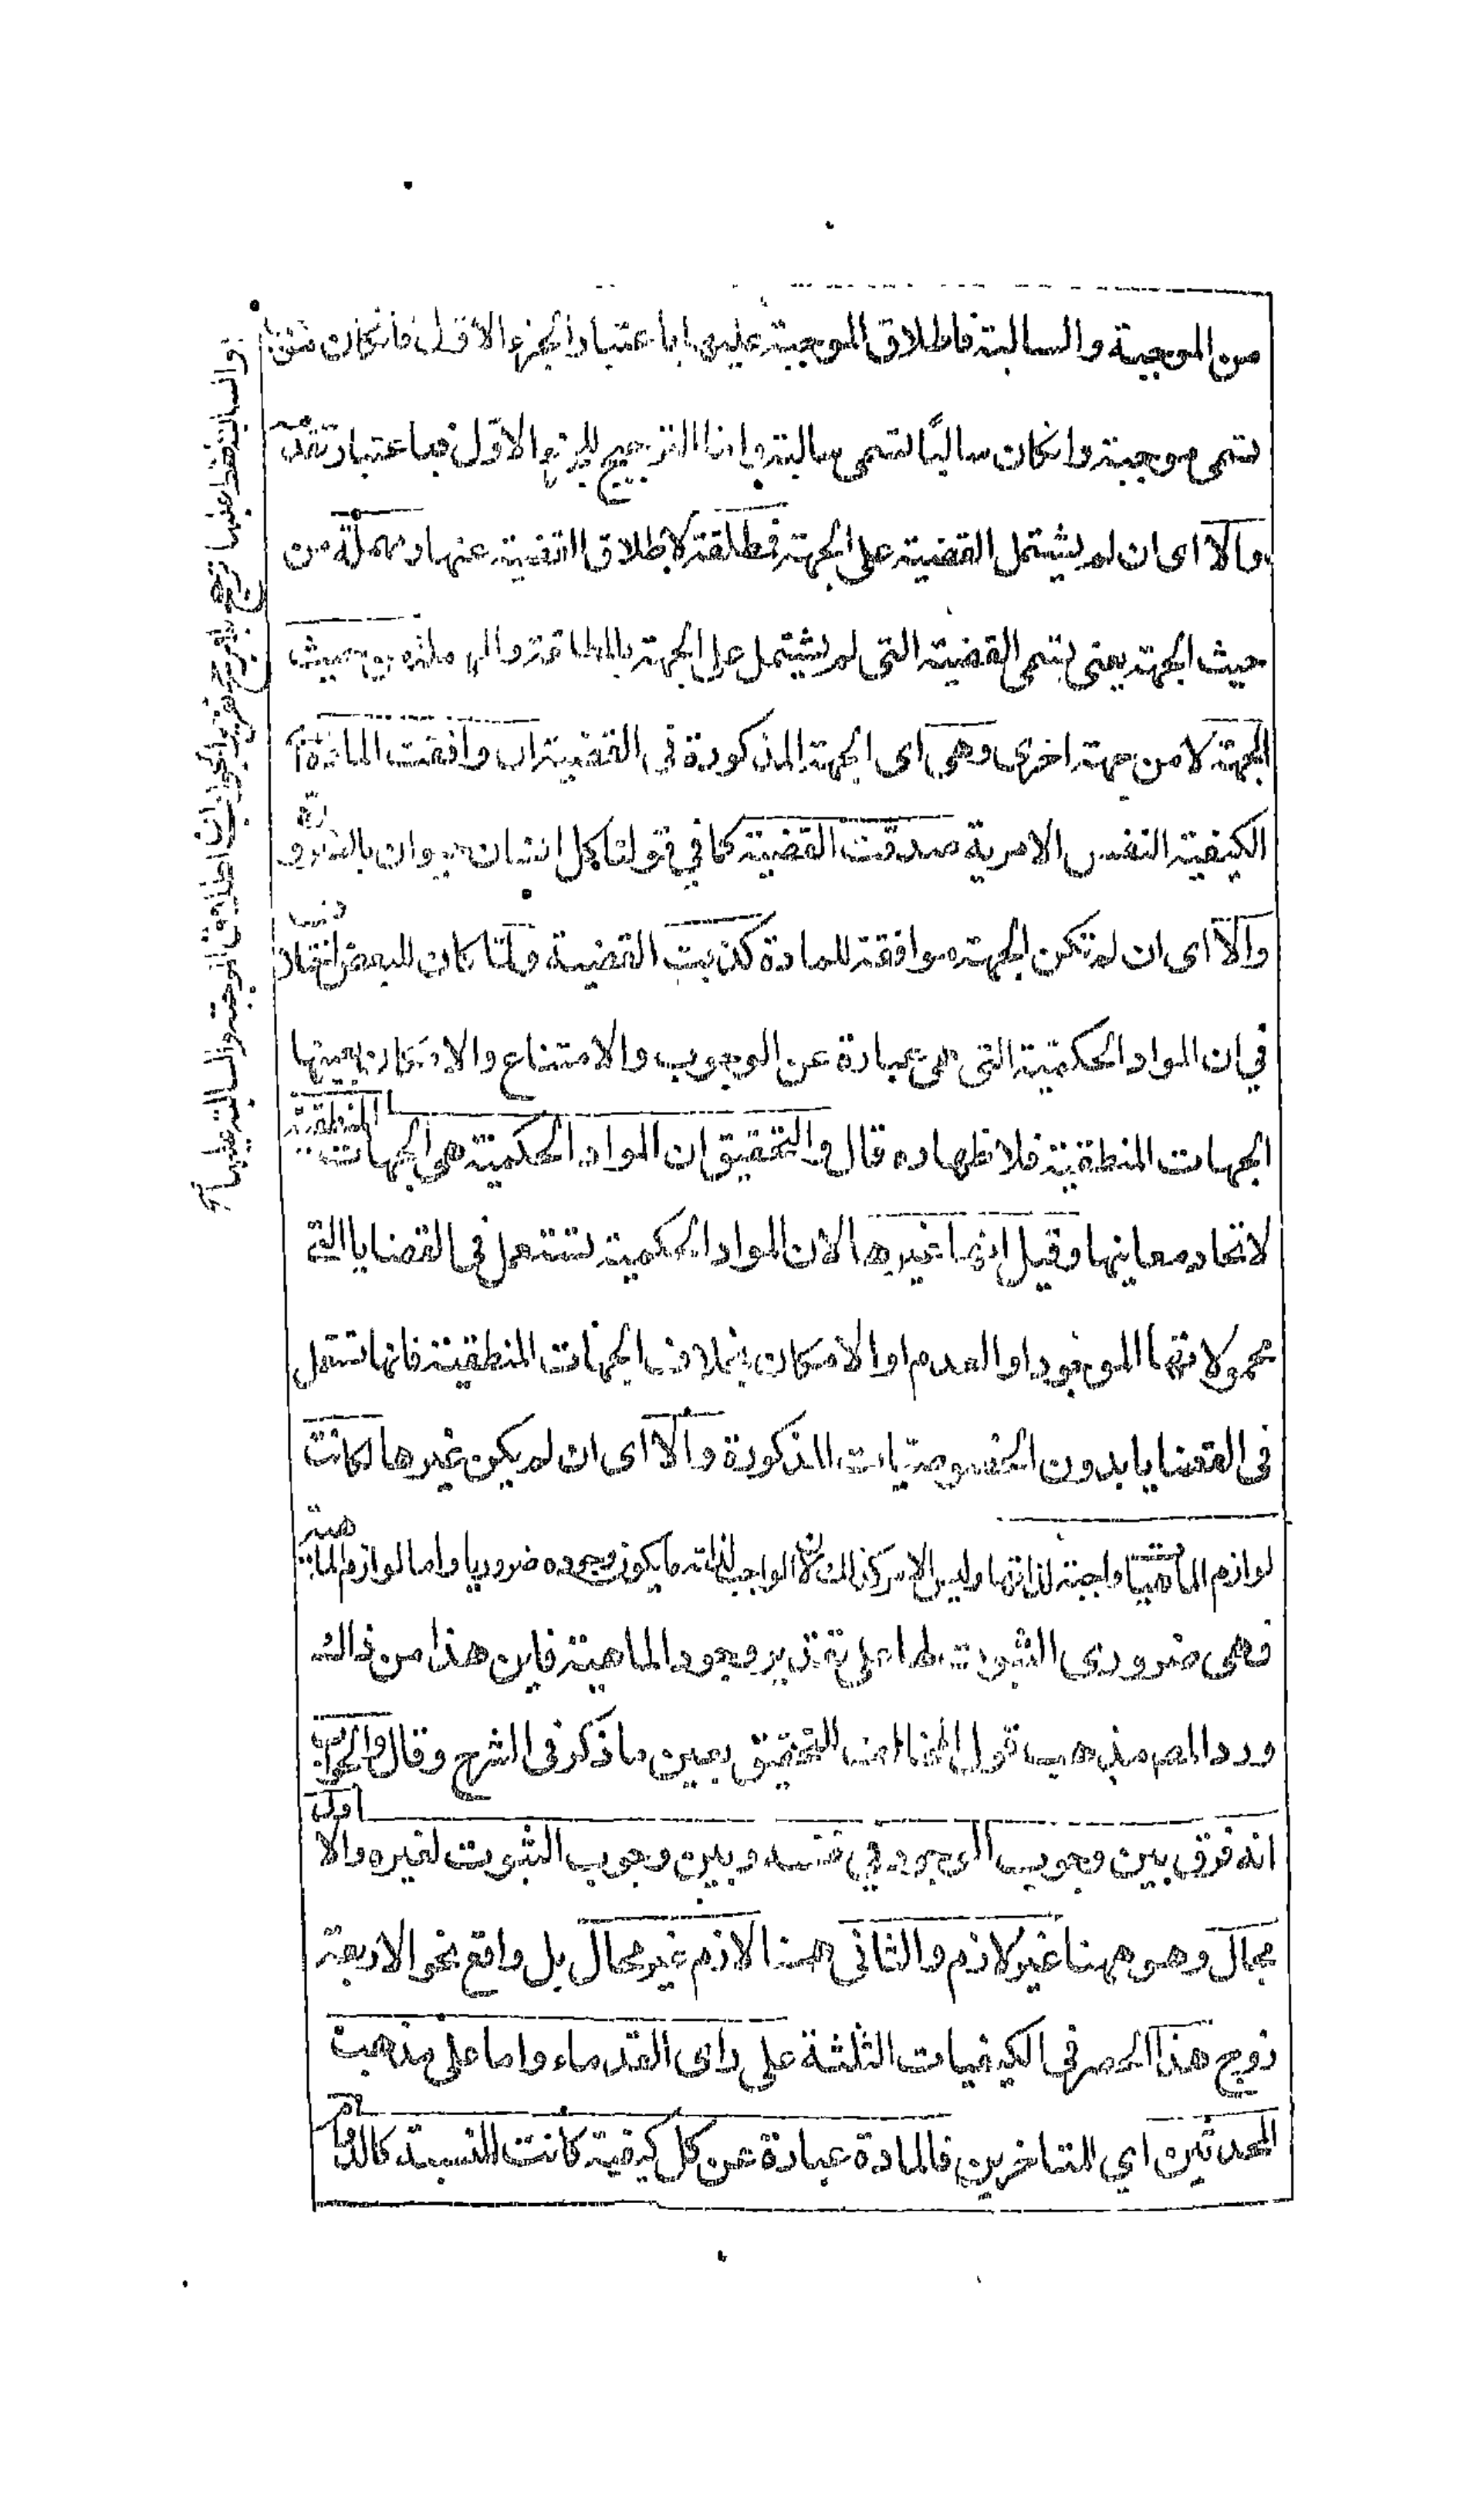 من الموجبة والسالبة فاطلاق الموجبة عليها باعتبار الجزء الاول فانكان
تسمى موجبة وانكان سالبًا تسمى سالبة واما الترجيح للجزء الاوّل فباعتبار تقدّمه
والّا اى ان لم يشتمل القضية على الجهة فمطلقة لاطلاق القضية عنها ومهملة من
حيث الجهة يعنى تسمى القضية التى لم يشتمل على الجهة بالمطلقة والمهملة من حيث
الجهة لا من جهة اخرى وهى اى الجهة المذكورة فى القضية ان وافقت المادّة اى
الكيفية النفس الامرية صدقت القضية كما في قولنا كل انسان حيوان بالضرورة
والّا اى ان لم تكن الجهة موافقة للمادة كذبت القضية ولمّا كان للبعض
في ان المواد الحكمية التى هى عبارة عن الوجوب والامتناع والامكان بعينها
الجهات المنطقية فلاظهاره قال والتحقيق ان المواد الحكمية هى الجهات المنطقية
لاتحاد معاينها وقيل انها غيرها لان المواد الحكمية تستعمل فى القضايا التى
محمولاتها الموجود او العدم او الامكان بخلاف الجهات المنطقية فانها تستعمل
فى القضايا بدون الخصوصيّات المذكورة والّا اى ان لم يكن غيرها لكانت
لوازم الماهيّات واجبة لذاتها وليس الامر كذلك لان الواجب لذاته ما يكون وجوده ضروريا واما لوازم الماهية
فهى ضرورى الثبوت لها على تقدير وجود الماهية فاين هذا من ذالك
ورد المص مذهب قول المخالف التحقيق بعين ما ذكر فى الشرح وقال والجواب
انه فرق بين وجوب الوجود في نفسه وبين وجوب الثبوت لغيره والاول
محال وهو ههنا غير لازم والثانى ههنا لازم غير محال بل واقع نحو الاربعة
زوج هذا الحصر فى الكيفيات الثلثة على راى القدماء واما على مذهب
المحدثين اي المتاخرين فالمادة عبارة عن كل كيفية كانت للنسبة كالدوام
والسالبة عليها ترجيح بلا مرجح اطلاق الموجبة والسالبة عليها